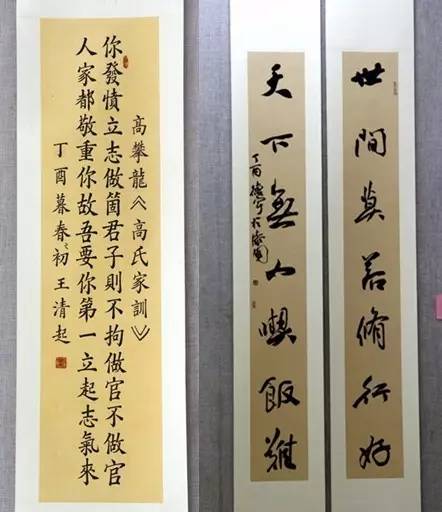 世間莫若脩行好
天下無人喫飯難
丁酉
高攀龍《高氏家訓》
你發憤立志做箇君子則不拘做官不做官
人家都敬重你故吾要你第一立起志氣來
丁酉暮春之初王清起